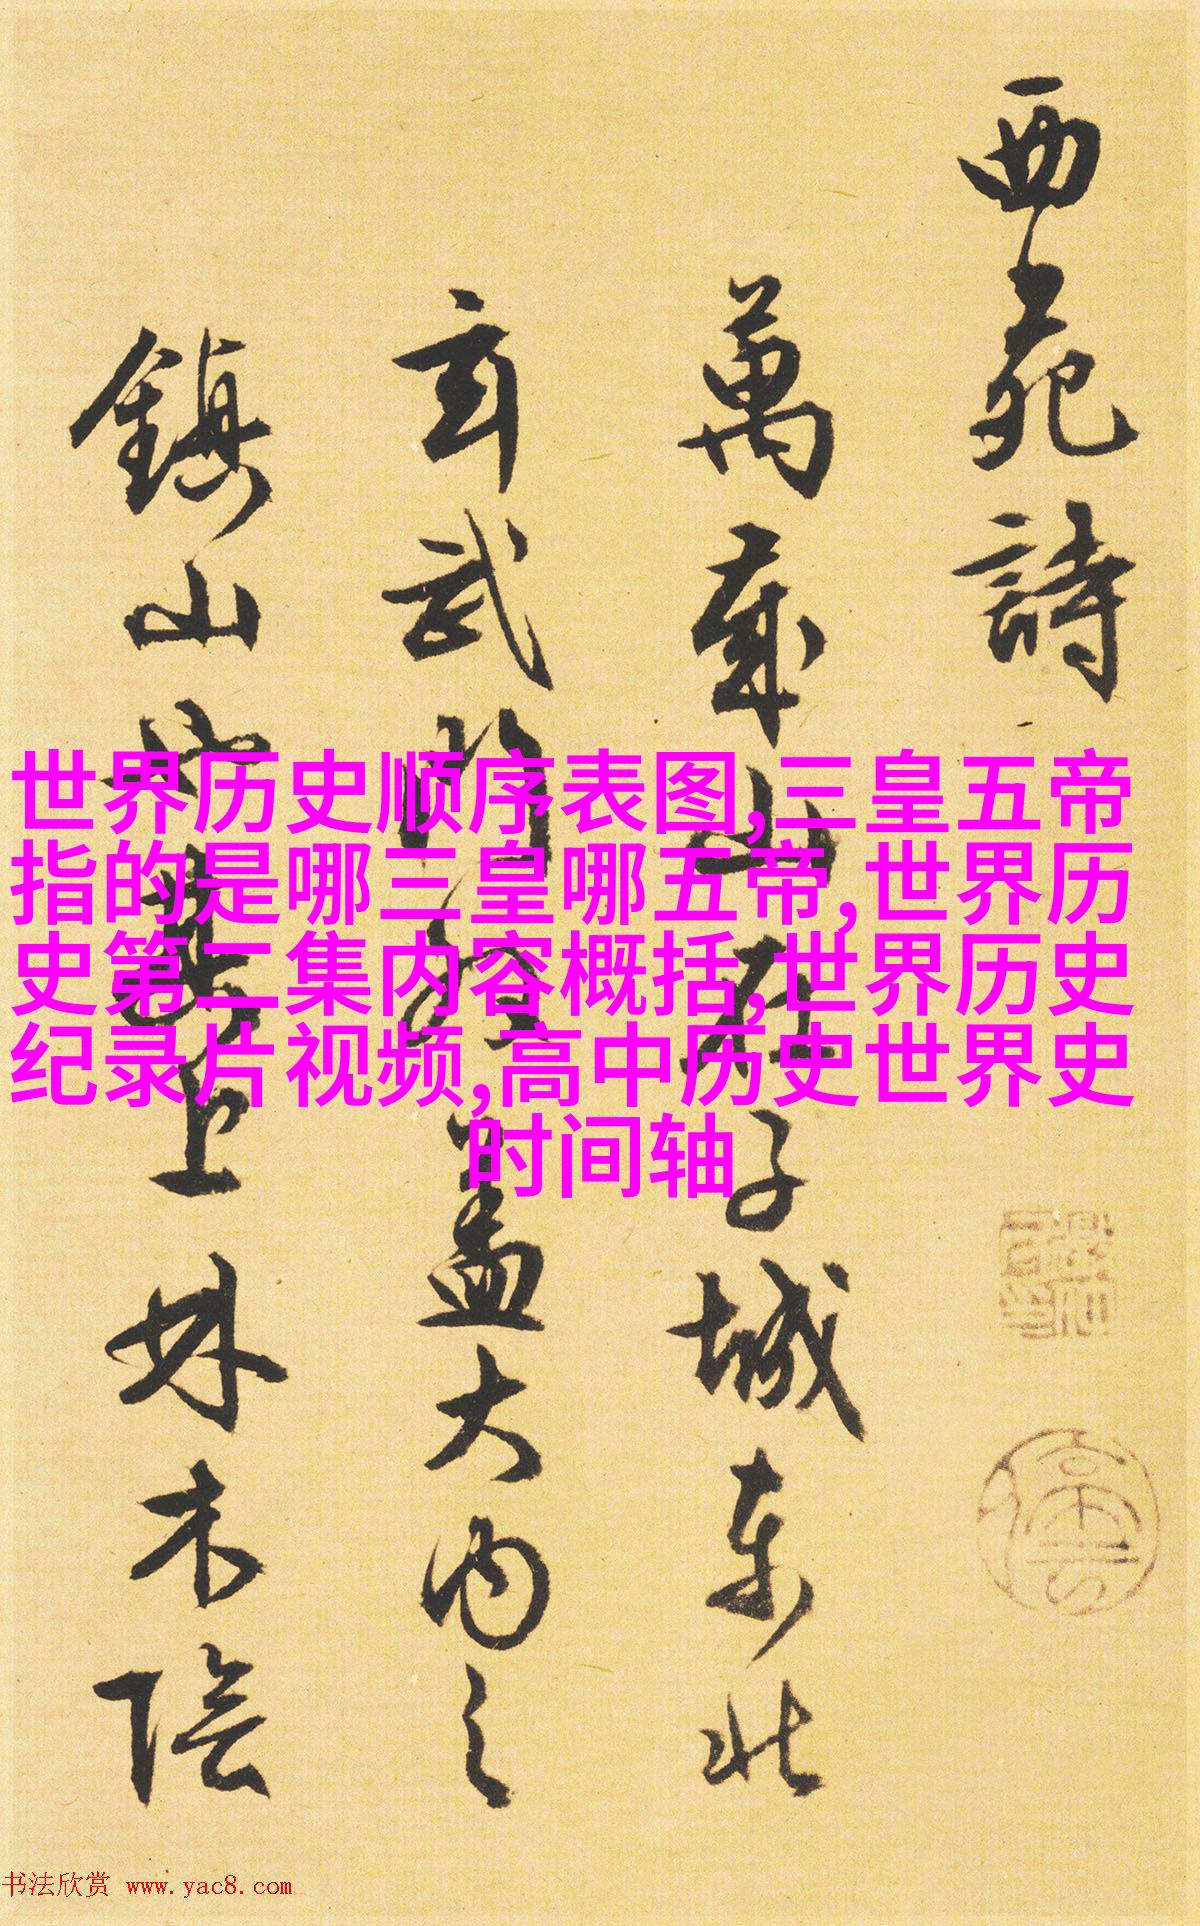 西苑詩
萬歲山在子城東北
玄武門外蓋大內之
鎮山也其上林木陰
世界历史顺序表图,三皇五帝
指的是哪三皇哪五帝,世界历
史第二集内容概括,世界历史
纪录片视频,高中历史世界史
时间轴
书法欣赏 www.yac8.com